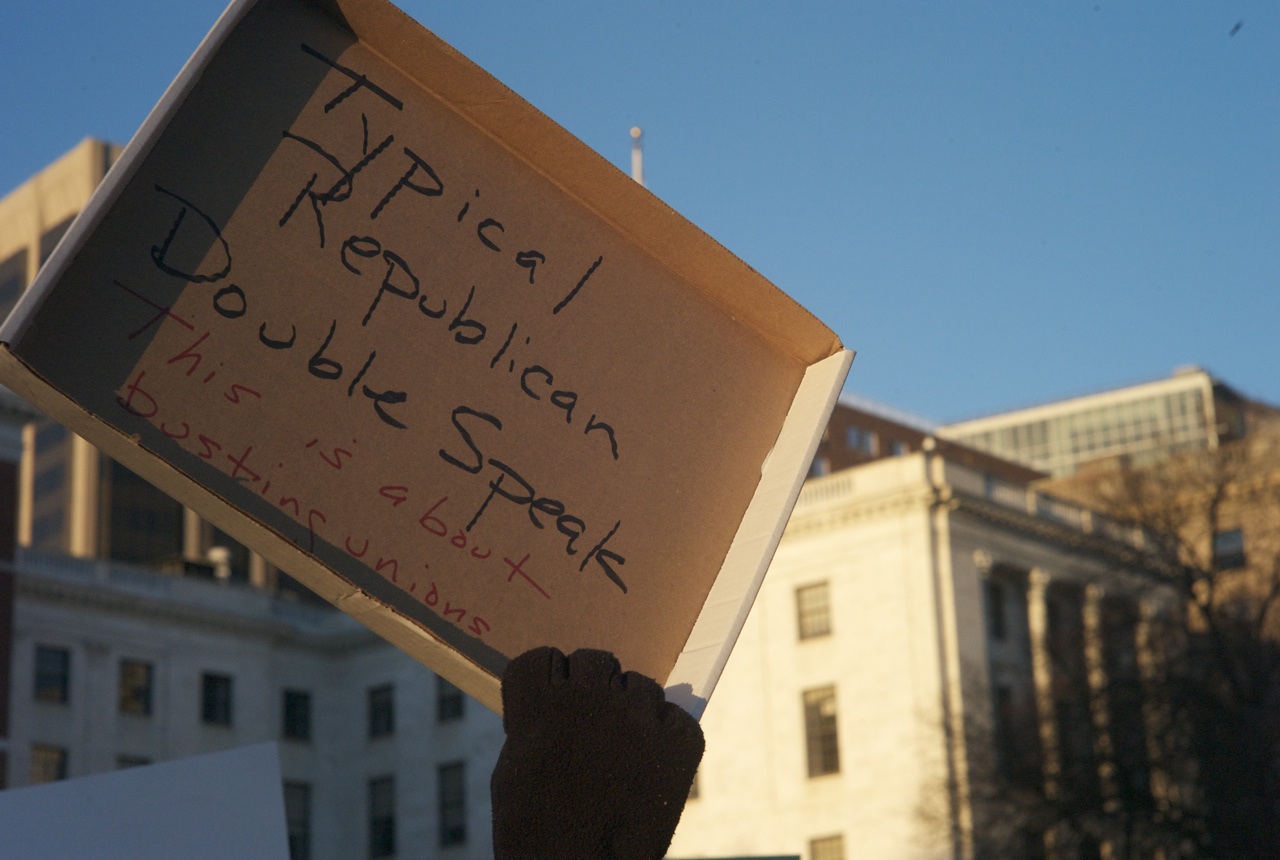 Typical
Republican
Double Speak
This is about
busting unions